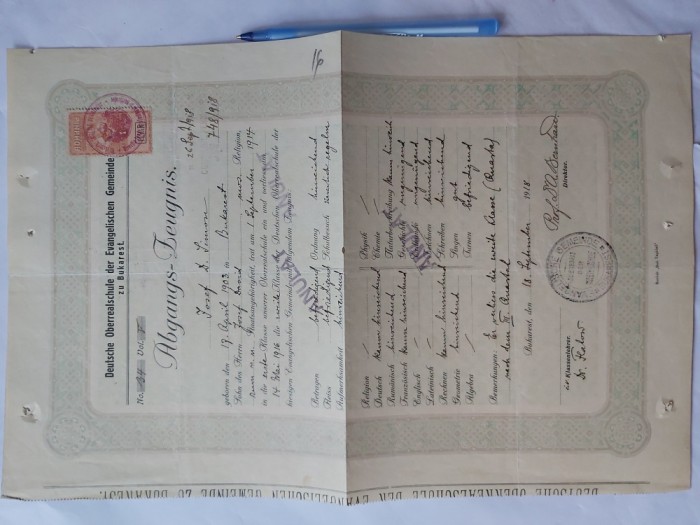 Deutsche Oberrealschule der Evangelischen Gemeinde
zu Bukarest.
No. Vol.
Abgangs-Zeugnis.
26 Sept/918
748/918
Josef L. Simon
geboren den 17. April 1903 in Bukarest
Sohn des Herrn Josef David, mos. Religion,
Staatsangehörigkeit, trat am 1. September 1914
in die erste Klasse unserer Oberrealschule ein und verliess am
14. Mai 1916 die zweite Klasse der Deutschen Oberrealschule der
hiesigen Evangelischen Gemeinde mit folgendem Zeugnis
Betragen befriedigend Ordnung hinreichend
Fleiss befriedigend Schulbesuch ziemlich regelm
Aufmerksamkeit hinreichend
ANULAT
Religion Physik
Deutsch kaum hinreichend Chemie
Rumänisch hinreichend kaum hinreich
Französisch kaum hinreichend Geschichte ungenügend
Englisch Geographie ungenügend
Lateinisch Zeichnen hinreichend
Rechnen kaum hinreichend Schreiben hinreichend
Geometrie hinreichend Singen gut
Algebra Turnen befriedigend
ANULAT
Bemerkungen: Er verliess die zweite Klasse (Quarta)
nach dem III. Quartal
Bukarest, den 18. September 1918
Der Klassenlehrer:
Dr.
Direktor.
DEUTSCHE OBERREALSCHULE DER EVANGELISCHEN GEMEINDE ZU BUKAREST.